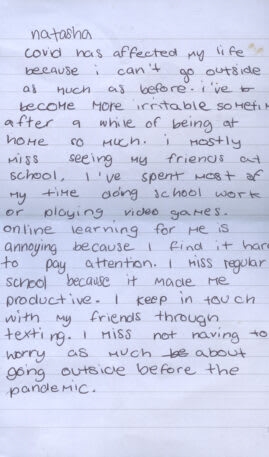 natasha
covid has affected my life
because i can't go outside
as much as before. i've
become more irritable
after a while of being at
home so much. i mostly
miss seeing my friends at
school. I've spent most of
my time doing school work
or playing video games.
online learning for me is
annoying because I find it
to pay attention. I miss regular
school because it made me
productive. I keep in touch
with my friends through
texting. I miss not having to
worry as much about
going outside before the
pandemic.